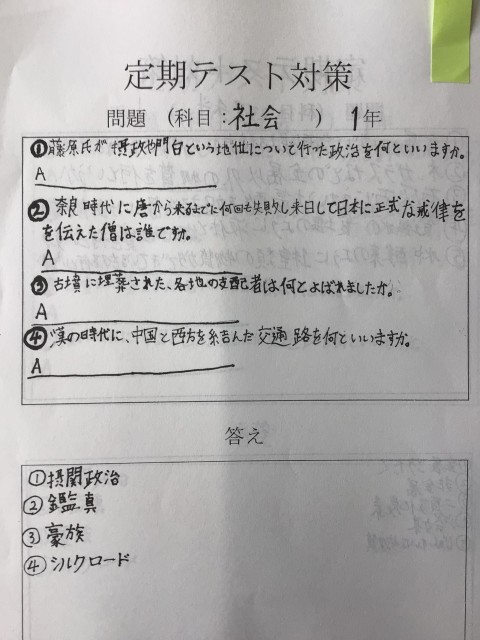 定期テスト対策
問題 (科目:社会 ) 1年
①藤原氏が摂政や関白という地位について行った政治を何といいますか。
A
②奈良時代に唐から来るまでに何回も失敗し来日して日本に正式な戒律を
を伝えた僧は誰ですか。
A
③古墳に埋葬された、各地の支配者は何とよばれましたか。
A
④漢の時代に、中国と西方を結んだ交通路を何といいますか。
A
答え
①摂関政治
②鑑真
③豪族
④シルクロード